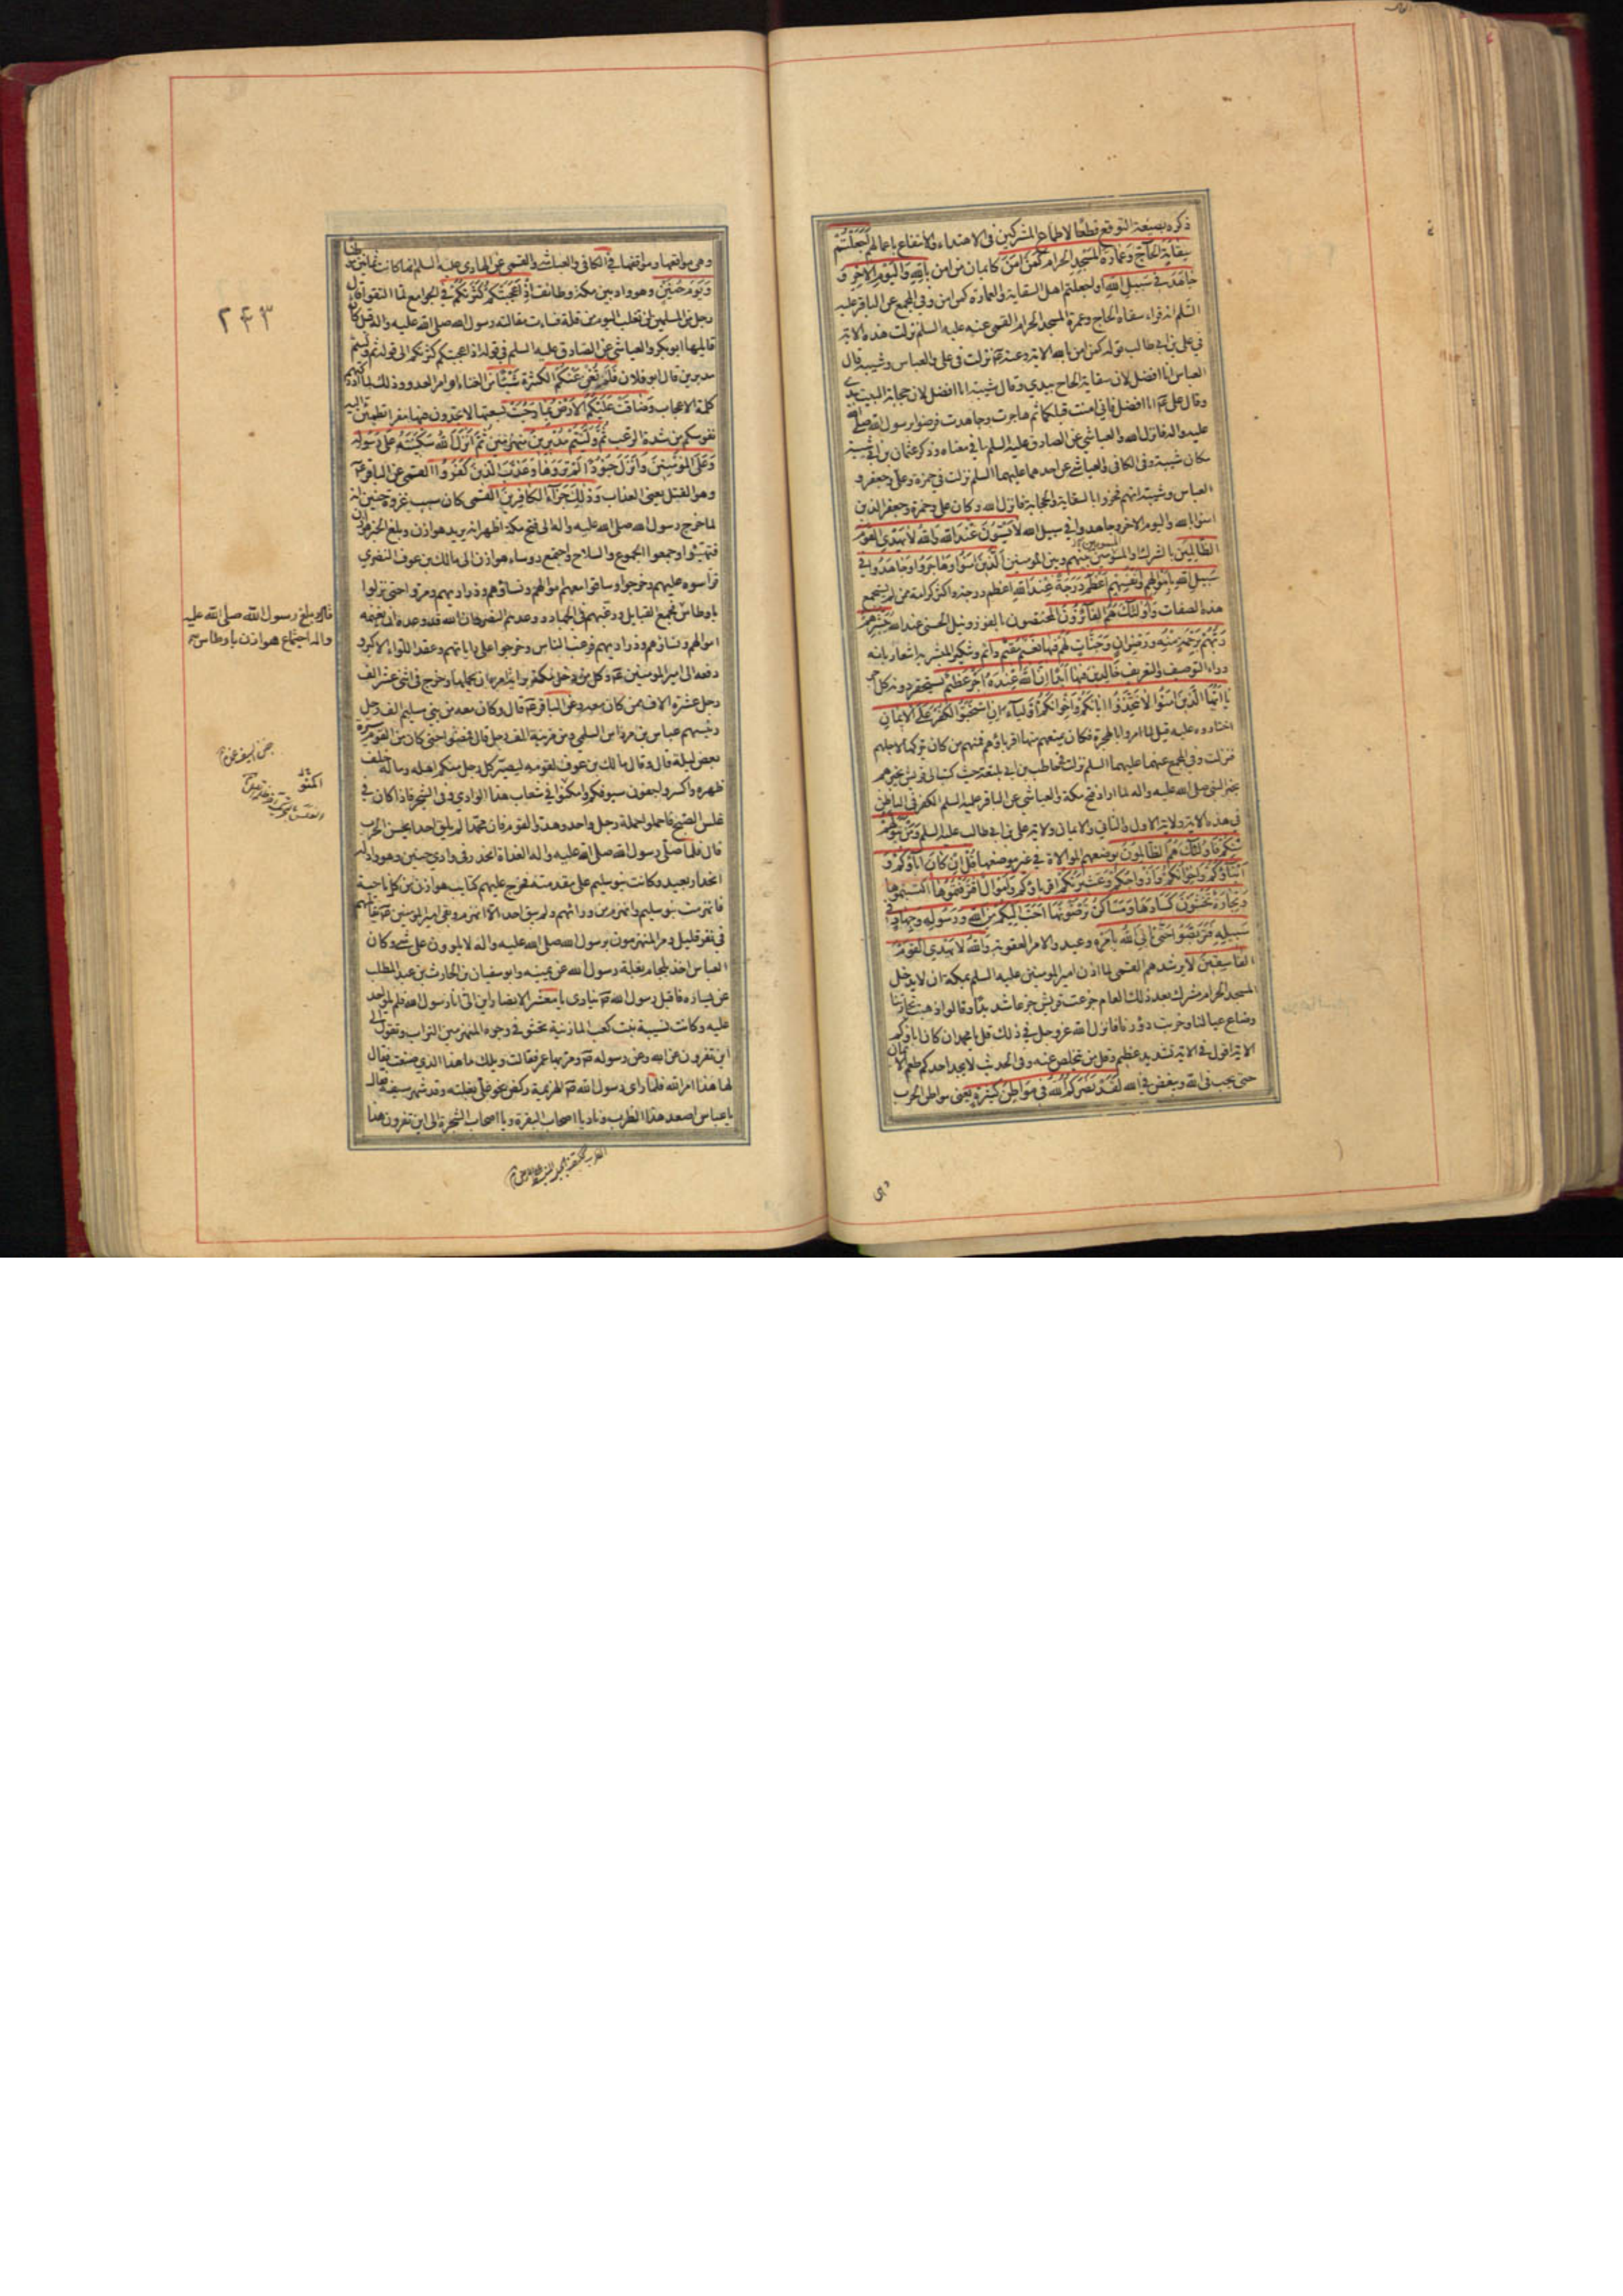 ذكره بصيغة التوقع قطعا لاطماع المشركين في الاهتداء والانتفاع باعمالهم اَجَعَلْتُمْ
سِقايَةَ الحَاجِّ وَعِمَارَةَ المَسْجِدِ الحَرامِ كَمَنْ آمَنَ كايمان من امن بِاللهِ وَاليَوْمِ الآخِرِ وَ
جَاهَدَ في سَبيلِ اللهِ او اجعلتم اهل السقاية والعمارة كمن امن وفي المجمع عن الباقر عليه
السّلم انه قراء سقاة الحاج وعمرة المسجد الحرام القمي عنه عليه السلم نزلت هذه الاية
في علي بن ابي طالب قوله كمن امن بالله الاية وعنه ع نزلت في علي والعباس وشيبة قال
العباس انا افضل لان سقاية الحاج بيدي وقال شيبة انا افضل لان حجابة البيت بيدي
وقال علي ع انا افضل فاني امنت قبلكما ثم هاجرت وجاهدت فرضوا برسول الله صلى الله
عليه واله فانزل الله والعياشي عن الصادق عليه السلم ما في معناه وذكر عثمان بن ابي شيبة
مكان شيبة وفي الكافي والعياشي عن احدهما عليهما السلم نزلت في حمزة وعلي وجعفر و
العباس وشيبة انهم فخروا بالسقاية والحجابة فانزل الله وكان علي وحمزة وجعفر الذين
امنوا بالله واليوم الاخر وجاهدوا في سبيل الله لا يَسْتَوُنَ عِنْدَ اللهِ وَاللهُ لا يَهْدِي القَوْمَ
الظَّالِمِينَ بالشرك والمسوين بينهم وبين المومنين اَلَّذِينَ آمَنُوا وَهَاجَرُوا وَجَاهَدُوا في
سَبيلِ اللهِ بِاَمْوَالِهِمْ وَاَنْفُسِهِمْ اَعْظَمُ دَرَجَةً عِنْدَ اللهِ اعظم درجة واكثر كرامة ممن لم يستجمع
هذه الصفات وَاُولٰئِكَ هُمُ الفَائِزُونَ المختصون بالفوز ونيل الحسنى عند الله يُبَشِّرُهُمْ
رَبُّهُمْ بِرَحْمَةٍ مِنْهُ وَرِضْوَانٍ وَجَنَّاتٍ لَهُمْ فِيهَا نَعِيمٌ مُقِيمٌ دائم وتنكير المبشر به اشعار بانه
وراء التوصيف والتعريف خَالِدِينَ فِيهَا اَبَدًا اِنَّ اللهَ عِنْدَهُ اَجْرٌ عَظِيمٌ يستحقر دونه كل اجر
يَا اَيُّهَا الَّذِينَ آمَنُوا لا تَتَّخِذُوا آبَائَكُمْ وَاِخْوَانَكُمْ اَوْلِيَاءَ اِنِ اسْتَحَبُّوا الكُفْرَ عَلَى الاِيمَانِ
اختاروه عليه قيل لما امروا بالهجرة فكان يمنعهم منها اقرباؤهم فمنهم من كان يتركها لاجلهم
فنزلت وفي المجمع عنهما عليهما السلم نزلت في حاطب بن ابي بلتعة حيث كتب الى قريش يخبرهم
بخبر النبي صلى الله عليه واله لما اراد فتح مكة والعياشي عن الباقر عليه السلم الكفر في الباطن
في هذه الاية ولاية الاول والثاني والايمان ولاية علي بن ابي طالب عليه السلم وَمَنْ يَتَوَلَّهُمْ
مِنْكُمْ فَاُولٰئِكَ هُمُ الظَّالِمُونَ بوضعهم الموالاة في غير موضعها قُلْ اِنْ كَانَ آبَاؤُكُمْ وَ
اَبْنَاؤُكُمْ وَاِخْوَانُكُمْ وَاَزْوَاجُكُمْ وَعَشِيرَتُكُمْ اقرباؤكم وَاَمْوَالٌ اقْتَرَفْتُمُوهَا اكتسبتموها
وَتِجَارَةٌ تَخْشَوْنَ كَسَادَهَا وَمَسَاكِنُ تَرْضَوْنَهَا اَحَبَّ اِلَيْكُمْ مِنَ اللهِ وَرَسُولِهِ وَجِهَادٍ في
سَبِيلِهِ فَتَرَبَّصُوا حَتّى يَاْتِيَ اللهُ بِاَمْرِهِ وعيد والامر العقوبة وَاللهُ لا يَهْدِي القَوْمَ
الفَاسِقِينَ لا يرشدهم القمي لما اذن امير المومنين عليه السلم بمكة ان لا يدخل
المسجد الحرام مشرك بعد ذلك العام جزعت قريش جزعا شديدا وقالوا ذهبت تجارتنا
وضاع عيالنا وخربت دورنا فانزل الله عز وجل في ذلك قل يا محمد ان كان اباؤكم
الاية اقول في الاية تشديد عظيم وقل من يتخلص عنه وفي الحديث لا يجد احدكم طعم الايمان
حتى يحب في الله ويبغض في الله لَقَدْ نَصَرَكُمُ اللهُ في مَوَاطِنَ كَثِيرَةٍ يعني مواطن الحرب
وهي
٢٤٣
وهي مواقعها ومواقفها في الكافي والعياشي والقمي عن الهادي عليه السلم انها كانت ثمانين
وَيَوْمَ حُنَيْنٍ وهو واد بين مكة وطائف اِذْ اَعْجَبَتْكُمْ كَثْرَتُكُمْ في الجوامع لما التقوا قال
رجل من المسلمين لن نغلب اليوم من قلة فساءت مقالته رسول الله صلى الله عليه واله قيل كان
قائلها ابوبكر والعياشي عن الصادق عليه السلم في قوله اذ اعجبتكم كثرتكم الى قوله ثم وليتم
مدبرين قال ابو فلان فَلَمْ تُغْنِ عَنْكُمْ الكثرة شَيْئًا من الغناء او امر العدو وذلك لما ادركهم
كلمة الاعجاب وَضَاقَتْ عَلَيْكُمُ الاَرْضُ بِمَا رَحُبَتْ بسعتها لا تجدون فيها مفرا تطمئن اليه
نفوسكم من شدة الرعب ثُمَّ وَلَّيْتُمْ مُدْبِرِينَ منهزمين ثُمَّ اَنْزَلَ اللهُ سَكِينَتَهُ عَلى رَسُولِهِ
وَعَلَى المُؤْمِنِينَ وَاَنْزَلَ جُنُودًا لَمْ تَرَوْهَا وَعَذَّبَ الَّذِينَ كَفَرُوا القمي عن الباقر ع
وهو القتل يعني العذاب وَذٰلِكَ جَزَاءُ الكَافِرِينَ القمي كان سبب غزوة حنين انه
لما خرج رسول الله صلى الله عليه واله الى فتح مكة اظهر انه يريد هوازن وبلغ الخبر هوازن
فتهيّئوا وجمعوا الجموع والسلاح واجتمع رؤساء هوازن الى مالك بن عوف النضري
فراسوه عليهم وخرجوا وساقوا معهم اموالهم ونساؤهم وذراريهم ومروا حتى نزلوا
باوطاس فجمع القبايل ورغبهم في الجهاد ووعدهم النصر وان الله قد وعده ان يغنمه
اموالهم ونساؤهم وذراريهم فرغب الناس وخرجوا على راياتهم وعقد اللواء الاكبر و
دفعه الى امير المومنين ع وكل من دخل مكة براية امره ان يحملها وخرج في اثني عشر الف
رجل عشرة الاف ممن كان معه وعن الباقر ع قال وكان معه من بني سليم الف رجل
رئيسهم عباس بن مرداس السلمي ومن مزينة الف رجل قال فمضوا حتى كان من القوم مسيرة
بعض ليلة قال وقال مالك بن عوف لقومه ليصير كل رجل منكم اهله وماله خلف
ظهره واكسروا جفون سيوفكم واكمنوا في شعاب هذا الوادي وفي الشجر فاذا كان في
غلس الصبح فاحملوا حملة رجل واحد وهدّوا القوم فان محمدا لم يلق احدا يحسن الحرب
قال فلما صلى رسول الله صلى الله عليه واله الغداة انحدر في وادي حنين وهو واد له
انحدار بعيد وكانت بنو سليم على مقدمته فخرج عليهم كتايب هوازن من كل ناحية
فانهزمت بنو سليم وانهزم من ورائهم ولم يبق احد الا انهزم وبقي امير المومنين ع يقاتلهم
في نفر قليل ومر المنهزمون برسول الله صلى الله عليه واله لا يلوون على شيء وكان
العباس اخذ بلجام بغلة رسول الله عن يمينه وابو سفيان بن الحارث بن عبد المطلب
عن يساره فاقبل رسول الله ص ينادي يا معشر الانصار اين الي انا رسول الله فلم يلو احد
عليه وكانت نسيبة بنت كعب المازنية تحثو في وجوه المنهزمين التراب وتقول الى
اين تفرون عن الله وعن رسوله ص ومر بها عمر فقالت ويلك ما هذا الذي صنعت فقال
لها هذا امر الله فلما راى رسول الله ص الهزيمة ركض نحو علي بغلته وقد شهر سيفه فقال
يا عباس اصعد هذا الظرب وناد يا اصحاب البقرة ويا اصحاب الشجرة الى اين تفرون هذا
قال وبلغ رسول الله صلى الله عليه
واله اجتماع هوازن باوطاس